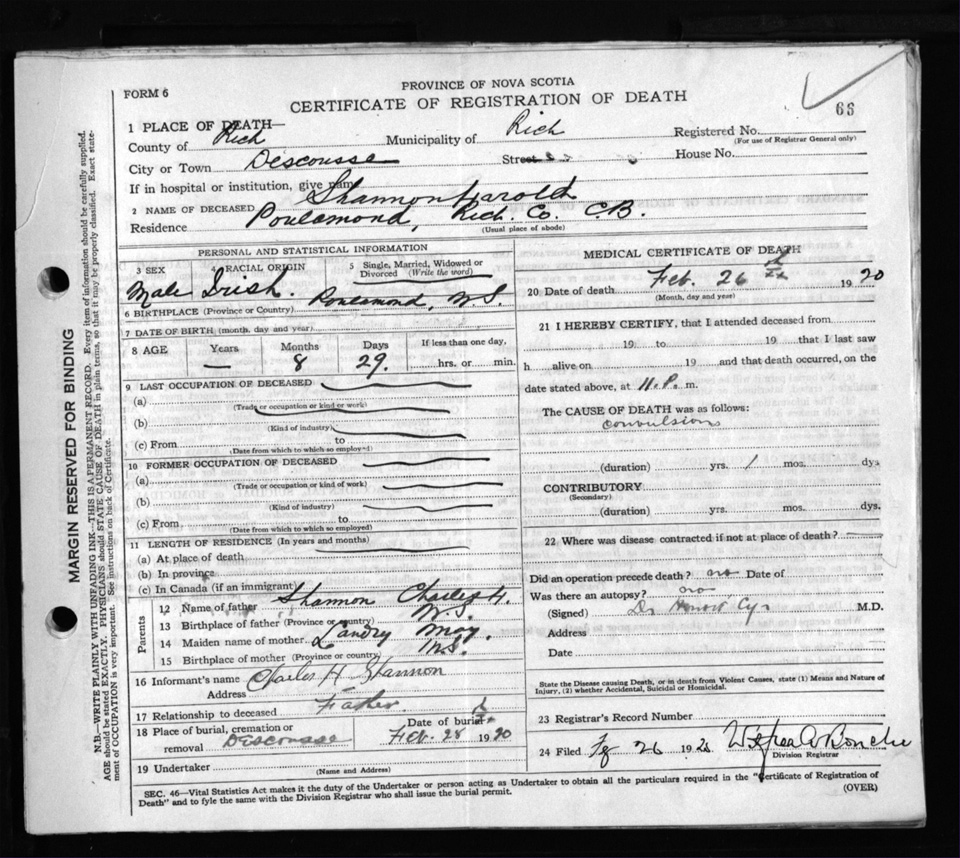 PROVINCE OF NOVA SCOTIA
FORM 6
CERTIFICATE OF REGISTRATION OF DEATH
66
1 PLACE OF DEATH—
County of Rich Municipality of Rich Registered No.
(For use of Registrar General only)
City or Town Descousse Street House No.
If in hospital or institution, give name
2 NAME OF DECEASED Shannon Harold
Residence Poulamond, Rich. Co. C.B.
(Usual place of abode)
PERSONAL AND STATISTICAL INFORMATION
3 SEX 4 RACIAL ORIGIN 5 Single, Married, Widowed or Divorced (Write the word)
Male Irish.
6 BIRTHPLACE (Province or Country) Poulamond, N.S.
7 DATE OF BIRTH (month, day and year)
8 AGE Years Months Days If less than one day,
— 8 29. hrs. or min.
9 LAST OCCUPATION OF DECEASED
(a)
(Trade or occupation or kind of work)
(b)
(Kind of industry)
(c) From to
(Date from which to which so employed)
10 FORMER OCCUPATION OF DECEASED
(a)
(Trade or occupation or kind of work)
(b)
(Kind of industry)
(c) From to
(Date from which to which so employed)
11 LENGTH OF RESIDENCE (In years and months)
(a) At place of death
(b) In province
(c) In Canada (if an immigrant)
Parents
12 Name of father Shannon Charles H.
13 Birthplace of father (Province or country) N.S.
14 Maiden name of mother Landry May.
15 Birthplace of mother (Province or country) N.S.
16 Informant's name Charles H Shannon
Address
17 Relationship to deceased Father
18 Place of burial, cremation or removal Descousse
Date of burial Feb. 28 1920
19 Undertaker
(Name and Address)
MEDICAL CERTIFICATE OF DEATH
20 Date of death Feb. 26 1920
(Month, day and year)
21 I HEREBY CERTIFY, that I attended deceased from
19 to 19 that I last saw
h alive on 19 and that death occurred, on the
date stated above, at 11.P. m.
The CAUSE OF DEATH was as follows:
convulsions
(duration) yrs. 1 mos. dys
CONTRIBUTORY
(Secondary)
(duration) yrs. mos. dys.
22 Where was disease contracted if not at place of death? —
Did an operation precede death? no Date of
Was there an autopsy? no
(Signed) Dr M.D.
Address
Date
State the Disease causing Death, or in death from Violent Causes, state (1) Means and Nature of
Injury, (2) whether Accidental, Suicidal or Homicidal.
23 Registrar's Record Number
24 Filed 26 192
Division Registrar
SEC. 46—Vital Statistics Act makes it the duty of the Undertaker or person acting as Undertaker to obtain all the particulars required in the "Certificate of Registration of
Death" and to fyle the same with the Division Registrar who shall issue the burial permit.
(OVER)
MARGIN RESERVED FOR BINDING
N.B.—WRITE PLAINLY WITH UNFADING INK—THIS IS A PERMANENT RECORD. Every item of information should be carefully supplied.
AGE should be stated EXACTLY. PHYSICIANS should STATE CAUSE OF DEATH in plain terms, so that it may be properly classified. Exact state-
ment of OCCUPATION is very important. See instructions on back of Certificate.